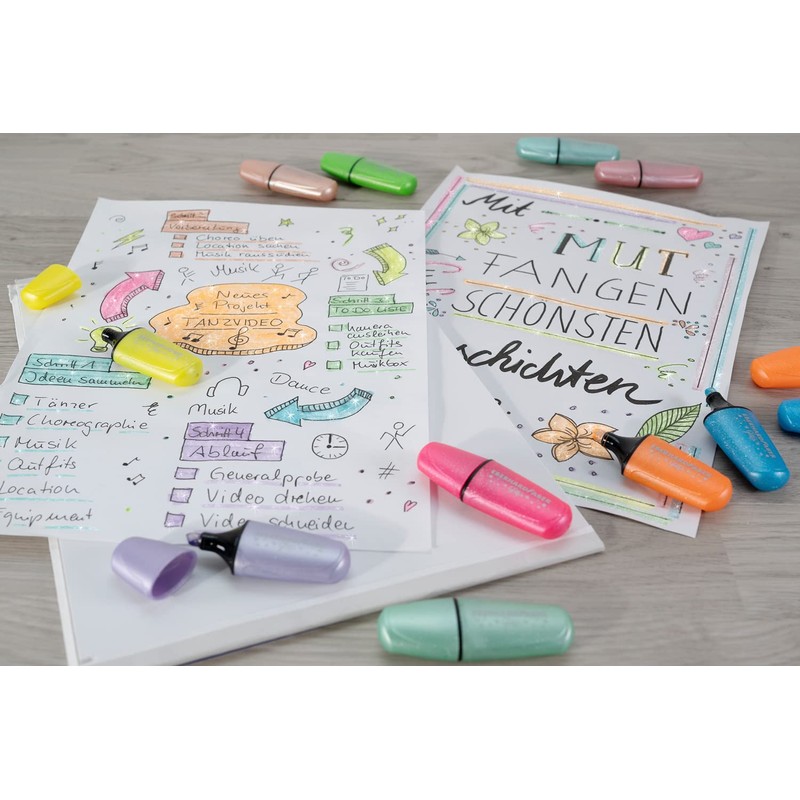 Schritt 2
Vorbereitung
Choreo üben
Location suchen
Musik raussuchen
Musik
Neues
Projekt
TANZVIDEO
To Do
Schritt 3
TO DO LISTE
Kamera
ausleihen
Outfits
kaufen
Musikbox
Schritt 1
Ideen sammeln
Tänzer
Choreographie
Musik
Outfits
Location
Equipment
Musik
Dance
Schritt 4
Ablauf
Generalprobe
Video drehen
Video schneiden
#
Mit
MUT
FANGEN
SCHÖNSTEN
chichten